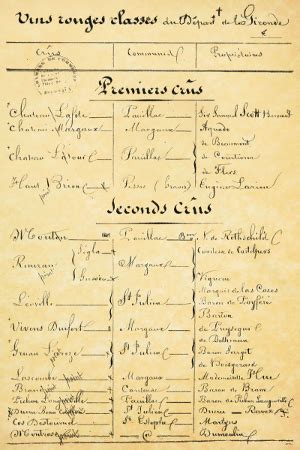 Vins rouges classés du Départ^t de la Gironde
Crûs Communes Propriétaires
Premiers Crûs
Château Lafite Pauillac Sir Samuel Scott
Château Margaux Margaux Aguado
de Beaumont
Château Latour Pauillac de Courtivron
de Flers
Haut Brion Pessac (Graves) Eugène Larrieu
Seconds Crûs
Mouton Pauillac B^on N. de Rothschild
Rauzan Ségla Comtesse de Castelpers
Gassies Margaux Viguerie
Marquis de las Cases
Léoville St Julien Baron de Poyféré
Barton
Vivens Durfort Margaux de Puységur
de Bethmann
Gruau Laroze St Julien Baron Sarget
de Boisgerard
Lascombe Margaux Mademoiselle Hue
Brane Cantenac Baron de Brane
Pichon Longueville Pauillac Baron de Pichon Longueville
Ducru Beau Caillou St Julien Ducru Ravez
Cos Destournel St Estèphe Martyns
Montrose Dumoulin